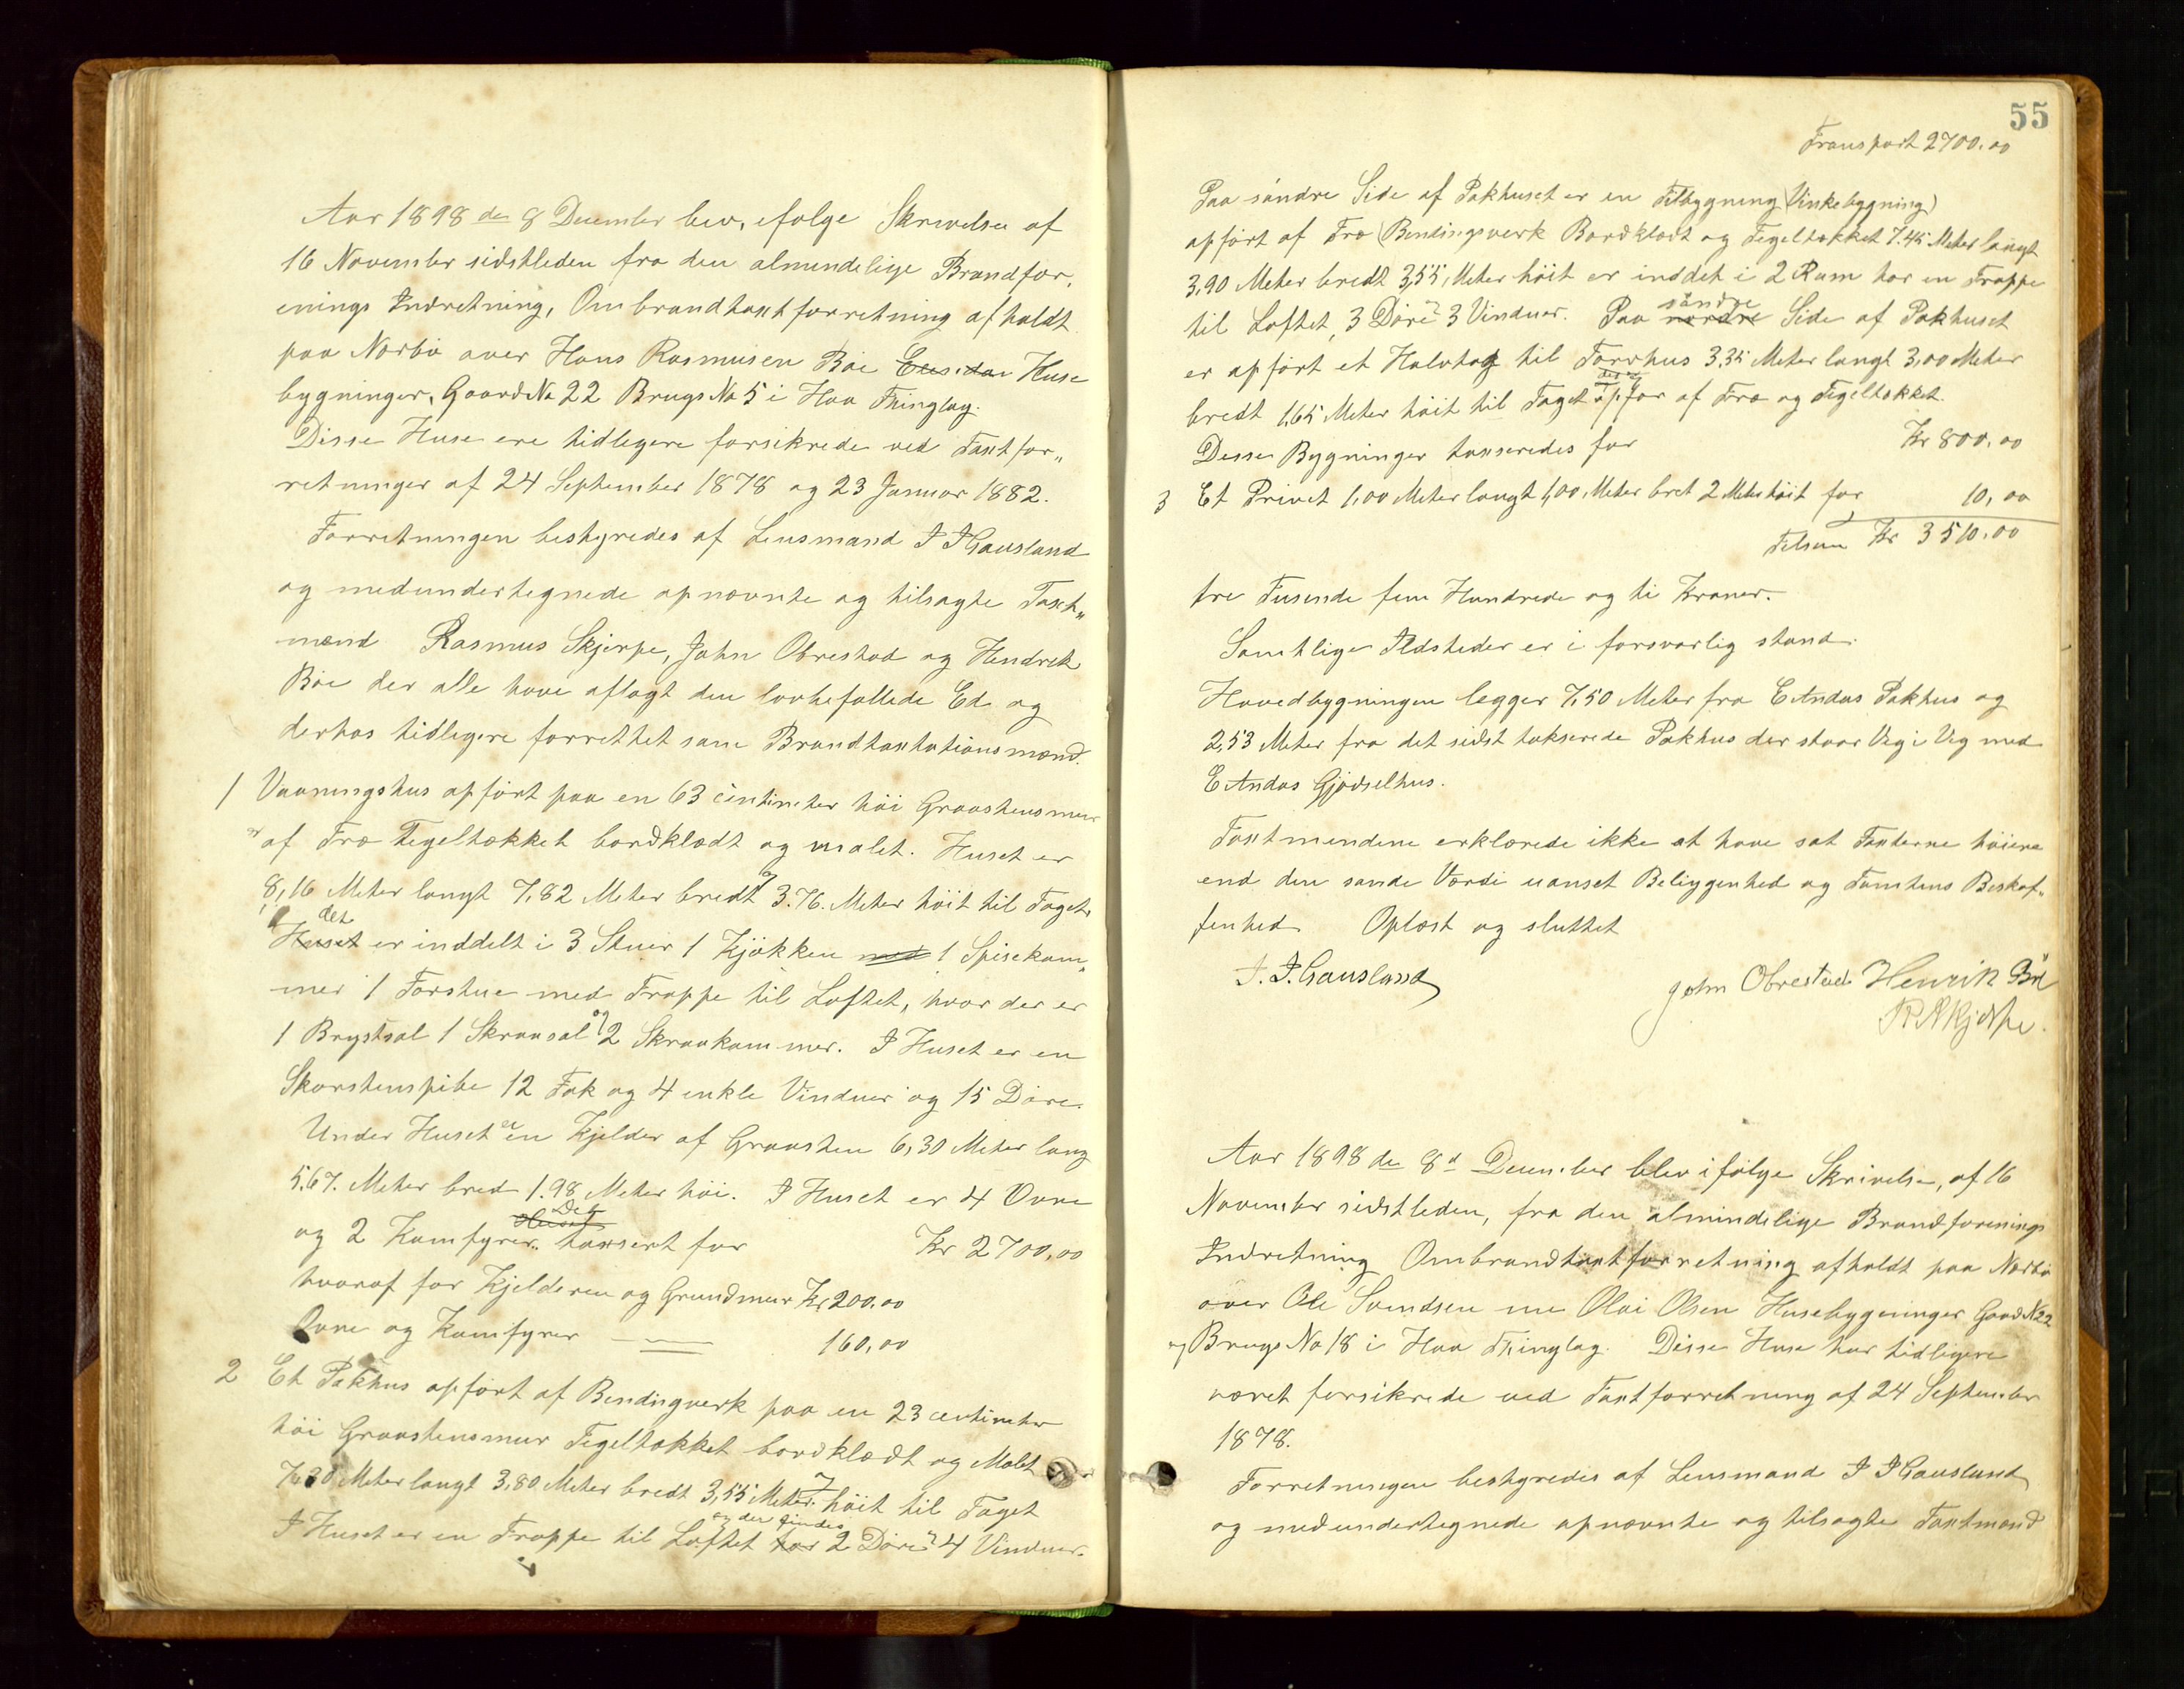 Aar 1898 den 8 December blev, ifølge Skrivelse af
16 November sidstleden fra den almindelige Brandfor,
enings Indretning, Ombrandtaxtforretning afholdt
paa Nærbø over Hans Rasmusen Bøe Huse
bygninger, Gaard No 22 Brugs No 5 i Haa Thinglag.
Disse Huse ere tidligere forsikrede ved Taxtfor„
retninger af 24 September 1878 og 23 Januar 1882.
Forretningen bestyredes af Lensmand I I Gausland
og medundertegnede opnævnte og tilsagte Taxt„
mænd Rasmus Skjerpe, John Obrestad og Hendrek
Bøe der alle have aflagt den lovbefallede Ed og
derhos tidligere forrettet som Brandtaxtationsmænd.
1 Vaaningshus opført paa en 63 centimeter høi Graastensmur
af Træ Tegeltækket bordklædt og malet. Huset er
8,16 Meter langt 7,82 Meter bredt og 3.76. Meter høit til Taget,
det
Huset er inddelt i 3 Stuer 1 Kjøkken med 1 Spisekam„
mer 1 Forstue med Trappe til Loftet, hvor der er
1 Brystsal 1 Skraasal og 2 Skraakammer. I Huset er en
Skorstenspibe 12 Fak og 4 enkle Vinduer og 15 Døre.
Under Huset er en Kjelder af Graasten 6,30 Meter lang
5.67. Meter bred 1.98 Meter høi. I Huset er 4 Ovne
Det
Huset
og 2 Komfyrer„ taxsert for Kr 2700,00
hvoraf for Kjelderen og Grundmur Kr 200,00
Ovne og Komfyrer 160,00
2 Et Pakhus opført af Bendingverk paa en 23 centimeter
høi Graastensmur Tegeltækket bordklædt og Malet
7,30 Meter langt 3,80 Meter bredt 3,55 Meter høit til Taget
og der findes
I Huset er en Trappe til Loftet har 2 Døre og 4 Vinduer.
55
Transport 2700.00
Paa søndre Side af Pakhuset er en Tilbygning (Vinkebygning)
opført af Træ (Bendingsverk Bordklædt og Tegeltækket 7.45 Meter langt
3,90 Meter bredt 3,55 Meter høit er inddet i 2 Rum har en Trappe
til Loftet, 3 Døre og 3 Vinduer. Paa nordre Side af Pakhuset
søndre
er opført et Halvtag til Torvhus 3.35 Meter langt 3,00 Meter
bredt 1,65 Meter høit til Taget opfør af Træ og Tegeltækket.
Desse Bygninger taxseredes for Kr 800,00
3 Et Privet 1,00 Meter langt 1,00 Meter bret 2 Meter høit for 10,00
Tilsam Kr 3510.00
tre Tusende fem Hundrede og ti Kroner.
Samtlige Ildsteder er i forsvarlig stand.
Hovedbygningen legger 7,50 Meter fra E Andas Pakhus og
2,53 Meter fra det sidst takserede Pakhus der staar Veg i Veg med
E Andas Gjødselhus.
Taxtmendene erklærede ikke at have sat Taxterne høiere
end den sande Værdi uanset Beliggenhed og Tomtens Beskaf„
fenhed Oplæst og sluttet
I. I. Gausland John Obrestad Henrik Bö
R Skjerpe.
Aar 1898 den 8d December blev ifølge Skrivelse, af 16
November sidstleden, fra den almindelige Brandforenings
Indretning Ombrandtaxtforretning afholdt paa Nærbø
over Ole Svendsen nu Olai Olsen Husebygninger Gaard N 22
og Brugs No 18 i Haa Thinglag. Disse Huse har tidligere
været forsikrede ved Taxtforretning af 24 September
1878.
Forretningen bestyredes af Lensmand I I Gausland
og medundertegnede opnævnte og tilsagte Taxtmænd